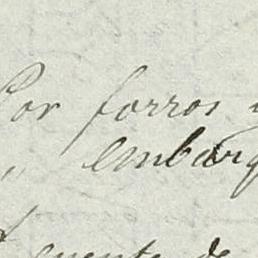 Por forros
" embarq
cuenta de